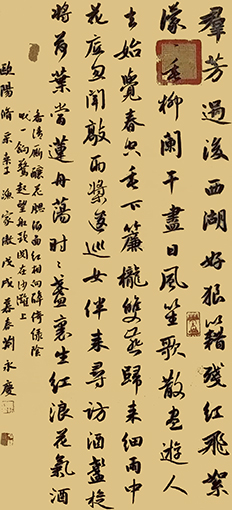 群芳過後西湖好狼籍殘紅飛絮
濛〻垂柳闌干盡日風笙歌散盡遊人
去始覺春空垂下簾櫳雙燕歸來細雨中
花底忽聞敲兩槳逡巡女伴來尋訪酒盞旋
將荷葉當蓮舟蕩時〻盞裏生紅浪花氣酒
香清廝釀花腮酒面紅相向醉倚綠陰
眠一餉驚起望船頭閣在沙灘上
歐陽脩采桑子漁家傲戊戌暮春劉永慶